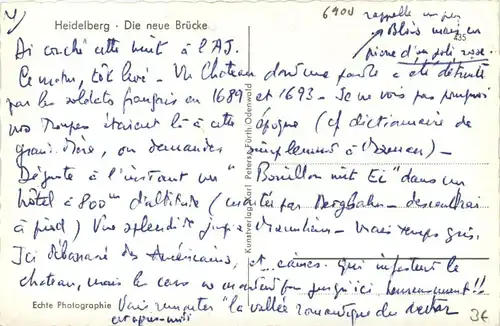 Heidelberg · Die neue Brücke
6900 rappelle un peu
Blois mais en
435
pierre d'un joli rose.
Ai couché cette nuit à l'AJ.
Ce matin, tôt levé - Vu Chateau dont une partie a été détruite
par les soldats français en 1689 et 1693 - Je ne vois pas pourquoi
nos troupes étaient là à cette époque (cf dictionnaire de
grand'mère, ou demandes simplement à Maman) -
Déguste à l'instant un "Bouillon mit Ei" dans un
hôtel à 800m d'altitude (montée par Bergbahn - descendrai
à pied) Vue splendide jusqu'à Mannheim - Mais temps gris.
Ici débarassé des Américains, et caines qui infestent le
chateau, mais le car ne montent pas jusqu'ici heureusement!!
Vais remonter "la vallée romantique du Neckar
cet après-midi
Echte Photographie
Kunstverlag Karl Peters · Fürth Odenwald
3€